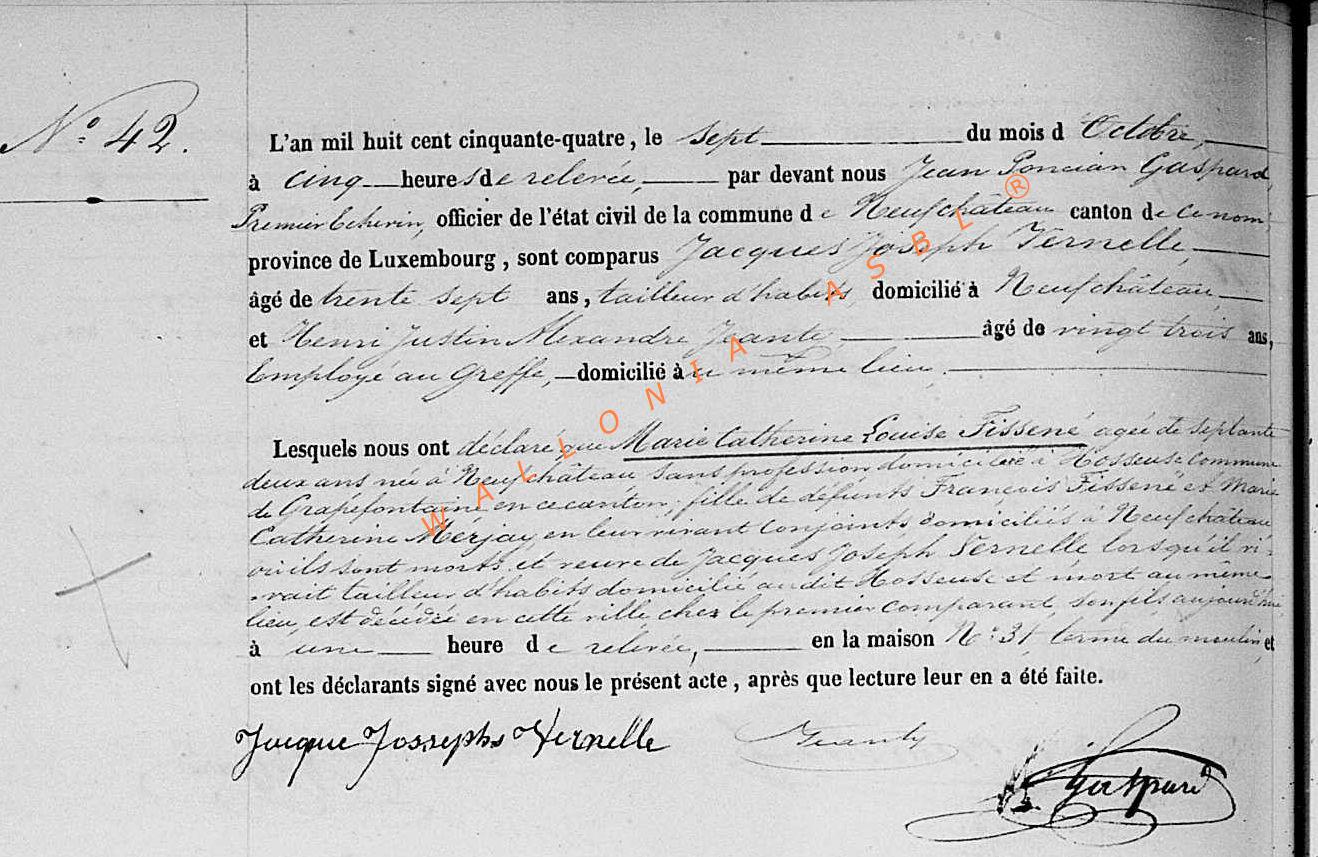 N.° 42.
L'an mil huit cent cinquante-quatre, le sept du mois d Octobre,
à cinq heures de relevée, par devant nous Jean Poncian Gaspard,
Premier Echevin, officier de l'état civil de la commune de Neufchâteau canton de ce nom,
province de Luxembourg, sont comparus Jacques Joseph Vernelle,
âgé de trente sept ans, tailleur d'habits, domicilié à Neufchâteau,
et Henri Justin Alexandre âgé de vingt trois ans,
Employé au Greffe, domicilié à même lieu.
Lesquels nous ont déclaré que Marie Catherine Louise Fissené agée de septante
deux ans née à Neufchâteau sans profession domiciliée à Hosseuse commune
de Grapfontaine en ce canton, fille de défunts François Fissené et Marie
Catherine Merjay, en leur vivant conjoints domiciliés à Neufchâteau
où ils sont morts, et veuve de Jacques Joseph Vernelle lorsqu'il vi-
vait tailleur d'habits domicilié au dit Hosseuse et mort au même
lieu, est décédée en cette ville chez le premier comparant, son fils aujourd'hui
à une heure de relevée, en la maison N.° 31, du moulin, et
ont les déclarants signé avec nous le présent acte, après que lecture leur en a été faite.
Jacque Jossephs Vernelle
Gaspard
WALLONIA ASBL ®